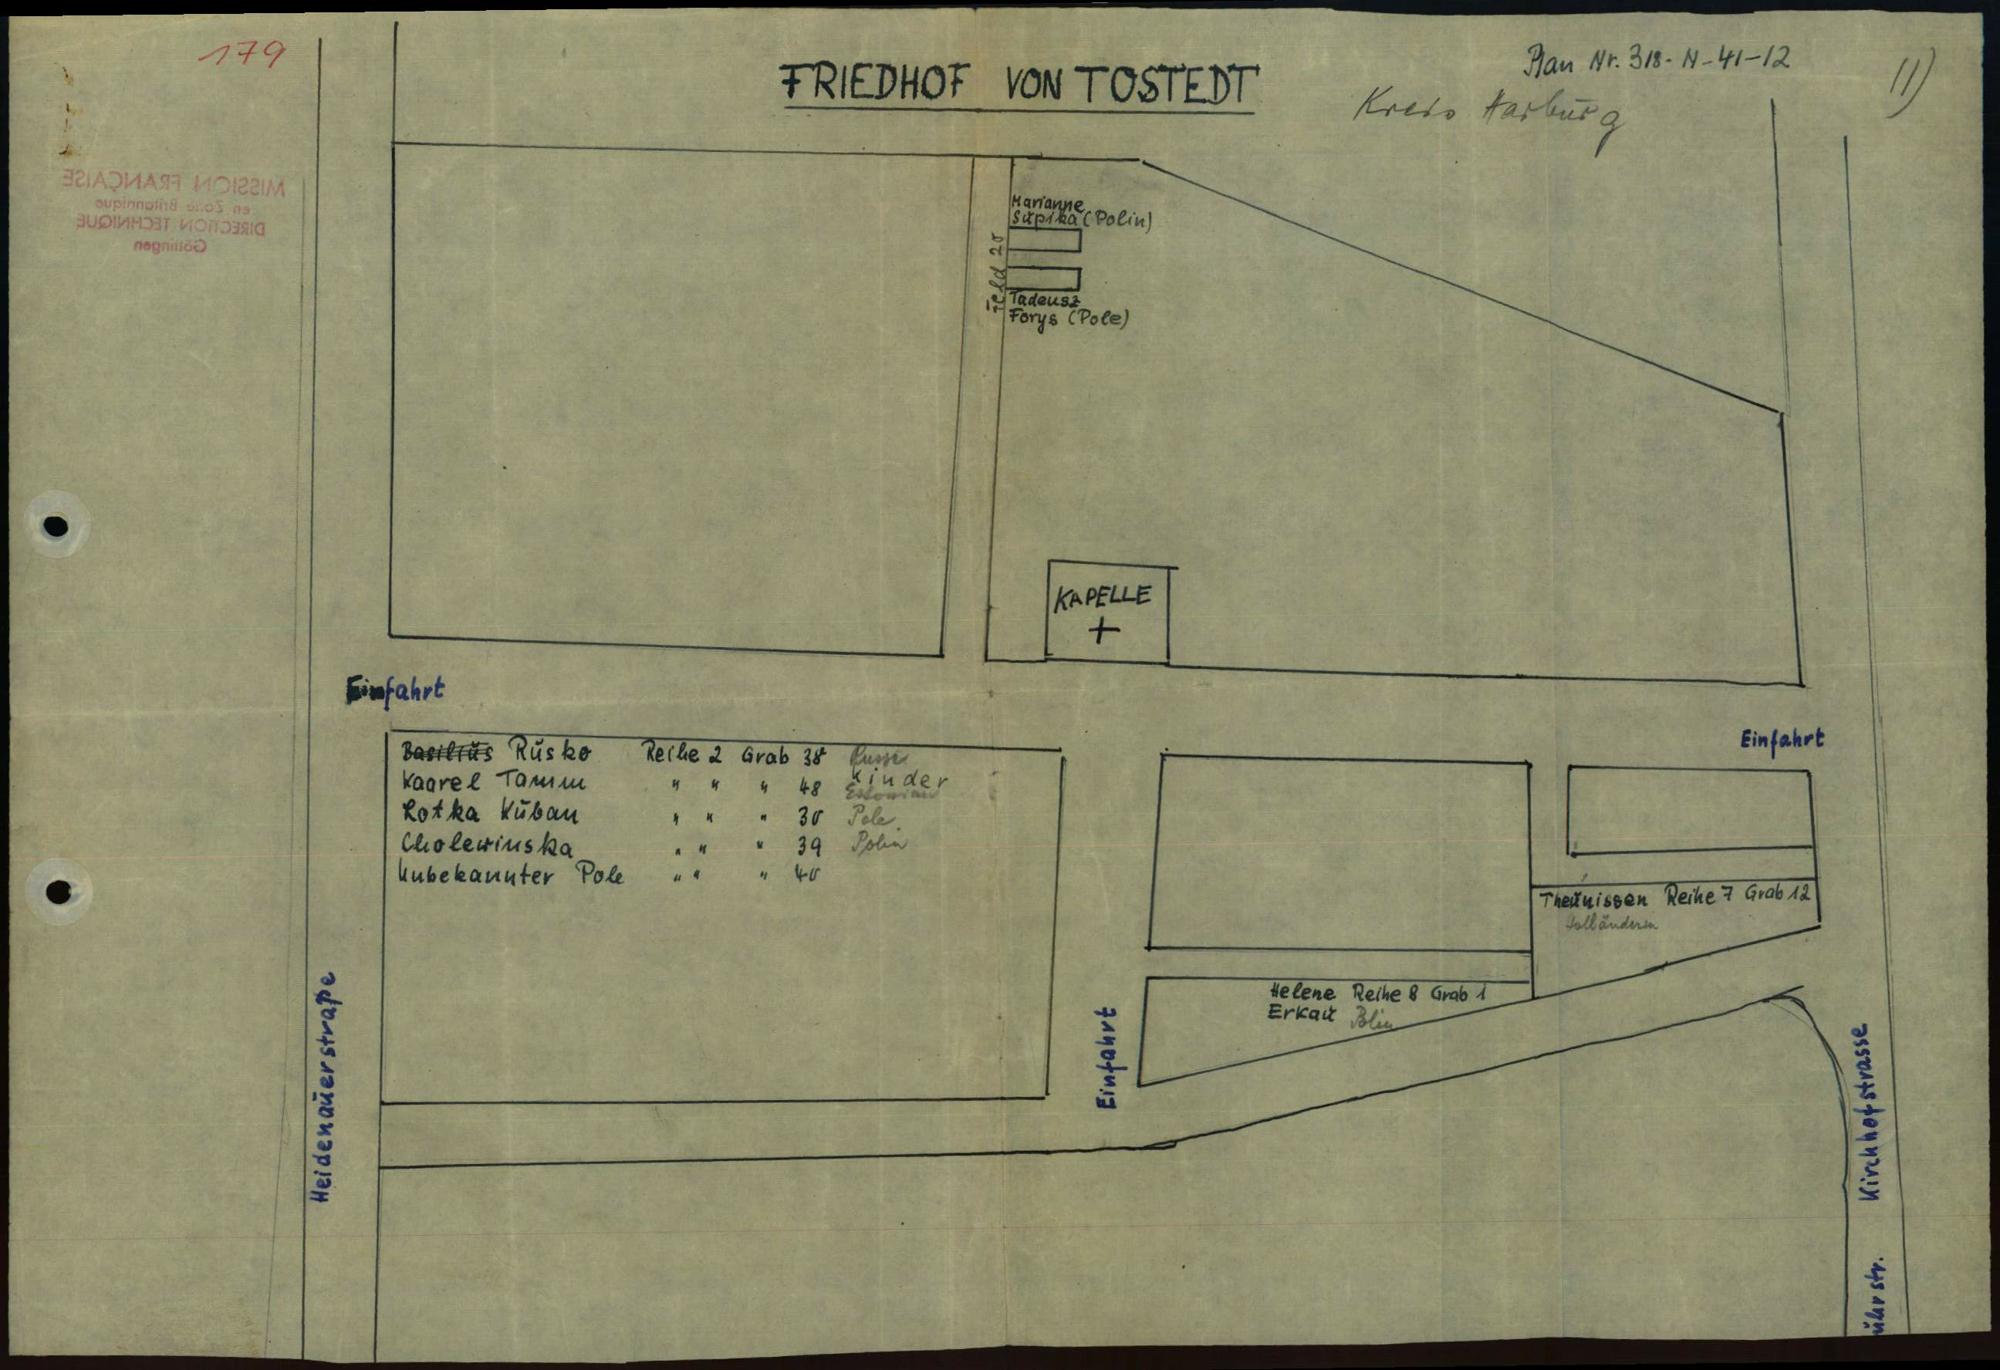 179
FRIEDHOF VON TOSTEDT
Plan Nr. 318-N-41-12
11)
Kreis Harburg
MISSION FRANÇAISE
en Zone Britannique
DIRECTION TECHNIQUE
Göttingen
Marianne
Supika (Polin)
Feld 20
Tadeusz
Forys (Pole)
KAPELLE
Einfahrt
Einfahrt
Basilius Rusko Reihe 2 Grab 38 Russe
Kaarel Tamm " " " 48 Kinder
Estonian
Lotka Kuban " " " 30 Pole
Cholewinska " " " 39 Polin
Unbekannter Pole " " " 40
Theunissen Reihe 7 Grab 12
Holländerin
Helene Reihe 8 Grab 1
Erkau Polin
Einfahrt
Heidenauerstraße
Kirchhofstrasse